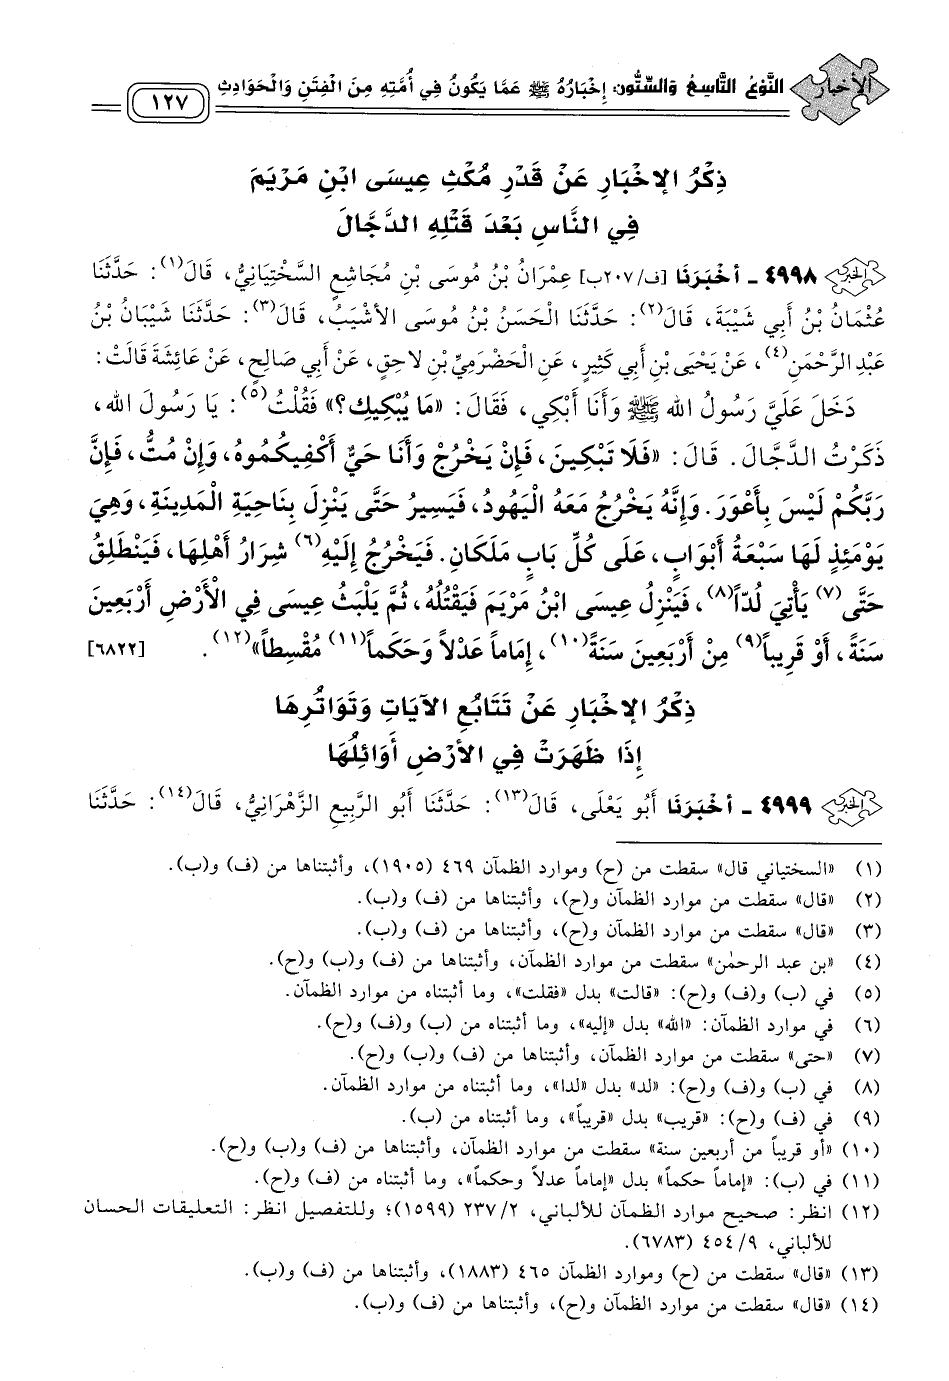 الأخبار النَّوْعُ التَّاسِعُ وَالسِّتُّونَ: إِخْبَارُهُ ﷺ عَمَّا يَكُونُ فِي أُمَّتِهِ مِنَ الْفِتَنِ وَالْحَوَادِثِ ١٢٧
ذِكْرُ الإِخْبَارِ عَنْ قَدْرِ مُكْثِ عِيسَى ابْنِ مَرْيَمَ
فِي النَّاسِ بَعْدَ قَتْلِهِ الدَّجَّالَ
٤٩٩٨ ـ أخْبَرَنَا [ف/٢٠٧ب] عِمْرَانُ بْنُ مُوسَى بْنِ مُجَاشِعٍ السَّخْتِيَانِيُّ، قَالَ(١): حَدَّثَنَا
عُثْمَانُ بْنُ أَبِي شَيْبَةَ، قَالَ(٢): حَدَّثَنَا الْحَسَنُ بْنُ مُوسَى الأَشْيَبُ، قَالَ(٣): حَدَّثَنَا شَيْبَانُ بْنُ
عَبْدِ الرَّحْمَنِ(٤)، عَنْ يَحْيَى بْنِ أَبِي كَثِيرٍ، عَنِ الْحَضْرَمِيِّ بْنِ لاحِقٍ، عَنْ أَبِي صَالِحٍ، عَنْ عَائِشَةَ قَالَتْ:
دَخَلَ عَلَيَّ رَسُولُ الله ﷺ وَأَنَا أَبْكِي، فَقَالَ: «مَا يُبْكِيكِ؟» فَقُلْتُ(٥): يَا رَسُولَ الله،
ذَكَرْتُ الدَّجَّالَ. قَالَ: «فَلَا تَبْكِينَ، فَإِنْ يَخْرُجْ وَأَنَا حَيٌّ أَكْفِيكُمُوهُ، وَإِنْ مُتُّ، فَإِنَّ
رَبَّكُمْ لَيْسَ بِأَعْوَرَ. وَإِنَّهُ يَخْرُجُ مَعَهُ الْيَهُودُ، فَيَسِيرُ حَتَّى يَنْزِلَ بِنَاحِيَةِ الْمَدِينَةِ، وَهِيَ
يَوْمَئِذٍ لَهَا سَبْعَةُ أَبْوَابٍ، عَلَى كُلِّ بَابٍ مَلَكَانِ. فَيَخْرُجُ إِلَيْهِ(٦) شِرَارُ أَهْلِهَا، فَيَنْطَلِقُ
حَتَّى(٧) يَأْتِيَ لُدّاً(٨)، فَيَنْزِلُ عِيسَى ابْنُ مَرْيَمَ فَيَقْتُلُهُ، ثُمَّ يَلْبَثُ عِيسَى فِي الْأَرْضِ أَرْبَعِينَ
سَنَةً، أَوْ قَرِيباً(٩) مِنْ أَرْبَعِينَ سَنَةً(١٠)، إِمَاماً عَدْلاً وَحَكَماً(١١) مُقْسِطاً»(١٢). [٦٨٢٢]
ذِكْرُ الإِخْبَارِ عَنْ تَتَابُعِ الآيَاتِ وَتَوَاتُرِهَا
إِذَا ظَهَرَتْ فِي الأَرْضِ أَوَائِلُهَا
٤٩٩٩ ـ أخْبَرَنَا أَبُو يَعْلَى، قَالَ(١٣): حَدَّثَنَا أَبُو الرَّبِيعِ الزَّهْرَانِيُّ، قَالَ(١٤): حَدَّثَنَا
(١) «السختياني قال» سقطت من (ح) وموارد الظمآن ٤٦٩ (١٩٠٥)، وأثبتناها من (ف) و(ب).
(٢) «قال» سقطت من موارد الظمآن و(ح)، وأثبتناها من (ف) و(ب).
(٣) «قال» سقطت من موارد الظمآن و(ح)، وأثبتناها من (ف) و(ب).
(٤) «بن عبد الرحمٰن» سقطت من موارد الظمآن، وأثبتناها من (ف) و(ب) و(ح).
(٥) في (ب) و(ف) و(ح): «قالت» بدل «فقلت»، وما أثبتناه من موارد الظمآن.
(٦) في موارد الظمآن: «الله» بدل «إليه»، وما أثبتناه من (ب) و(ف) و(ح).
(٧) «حتى» سقطت من موارد الظمآن، وأثبتناها من (ف) و(ب) و(ح).
(٨) في (ب) و(ف) و(ح): «لد» بدل «لدا»، وما أثبتناه من موارد الظمآن.
(٩) في (ف) و(ح): «قريب» بدل «قريباً»، وما أثبتناه من (ب).
(١٠) «أو قريباً من أربعين سنة» سقطت من موارد الظمآن، وأثبتناها من (ف) و(ب) و(ح).
(١١) في (ب): «إماماً حكماً» بدل «إماماً عدلاً وحكماً»، وما أثبتناه من (ف) و(ح).
(١٢) انظر: صحيح موارد الظمآن للألباني، ٢/ ٢٣٧ (١٥٩٩)؛ وللتفصيل انظر: التعليقات الحسان
للألباني، ٩/ ٤٥٤ (٦٧٨٣).
(١٣) «قال» سقطت من (ح) وموارد الظمآن ٤٦٥ (١٨٨٣)، وأثبتناها من (ف) و(ب).
(١٤) «قال» سقطت من موارد الظمآن و(ح)، وأثبتناها من (ف) و(ب).